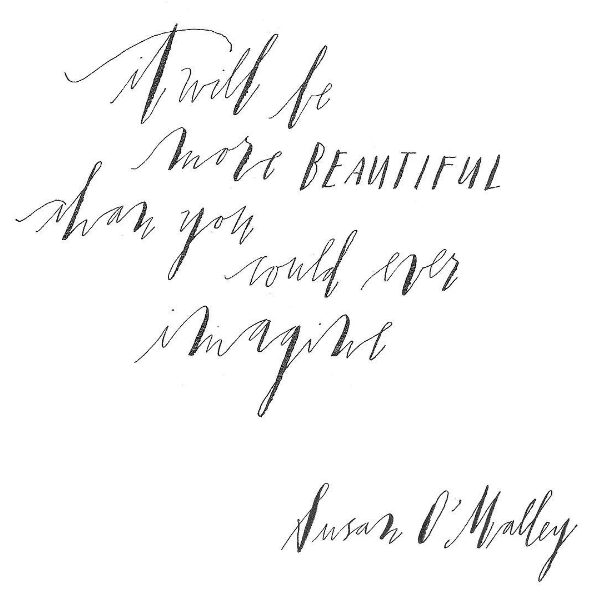 it will be
more BEAUTIFUL
than you
could ever
imagine
Susan O'Malley